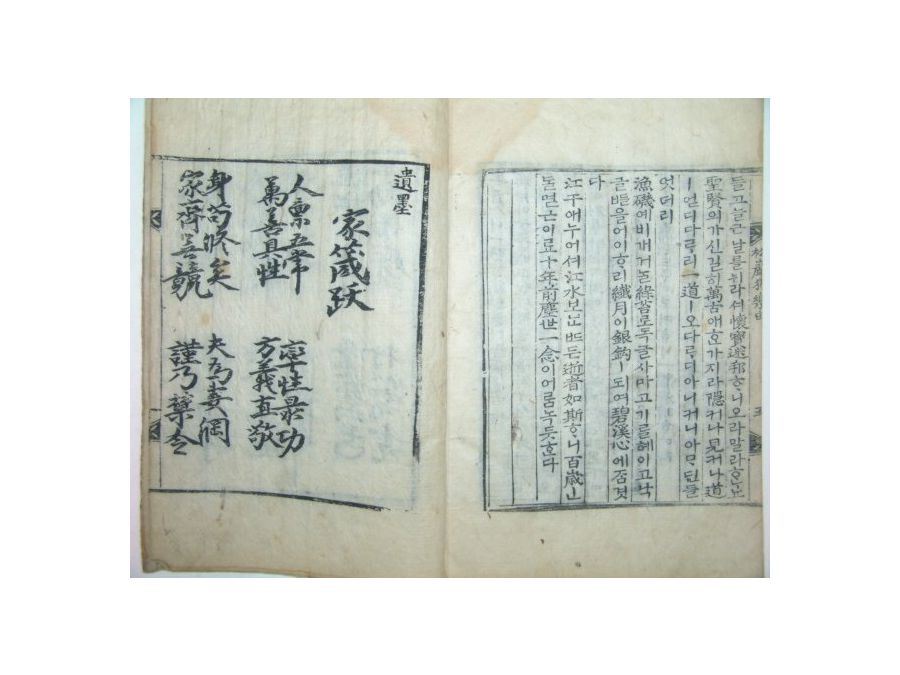 들고늘근날를위라셔懷寶迷邦ᄒᆞ니오라말라ᄒᆞᄂᆞ뇨
聖賢의가신길히萬古애ᄒᆞᆫ가지라隱커나見커나道
ㅣ얻디다ᄅᆞ리一道ㅣ오다ᄅᆞ디아니커니아ᄆᆞᆫᄃᆡᆫᄃᆞᆯ
엇더리
漁磯예비개거늘綠苔로독글사마고기를혜이고낙
글ᄠᅳ들어이ᄒᆞ리纖月이銀鉤ㅣ되여碧溪心에ᄌᆞᆷ겻
다
江干애누어셔江水보ᄂᆞᆫᄠᅳ든逝者如斯ᄒᆞ니百歲ㄴ
ᄃᆞᆯ멷근이료十年前塵世一念이어름녹듯ᄒᆞ다
遺墨
家箴
人稟五常 最功
萬善具性 方義直敬
身苟修矣 夫爲妻綱
家齊無競 謹乃令